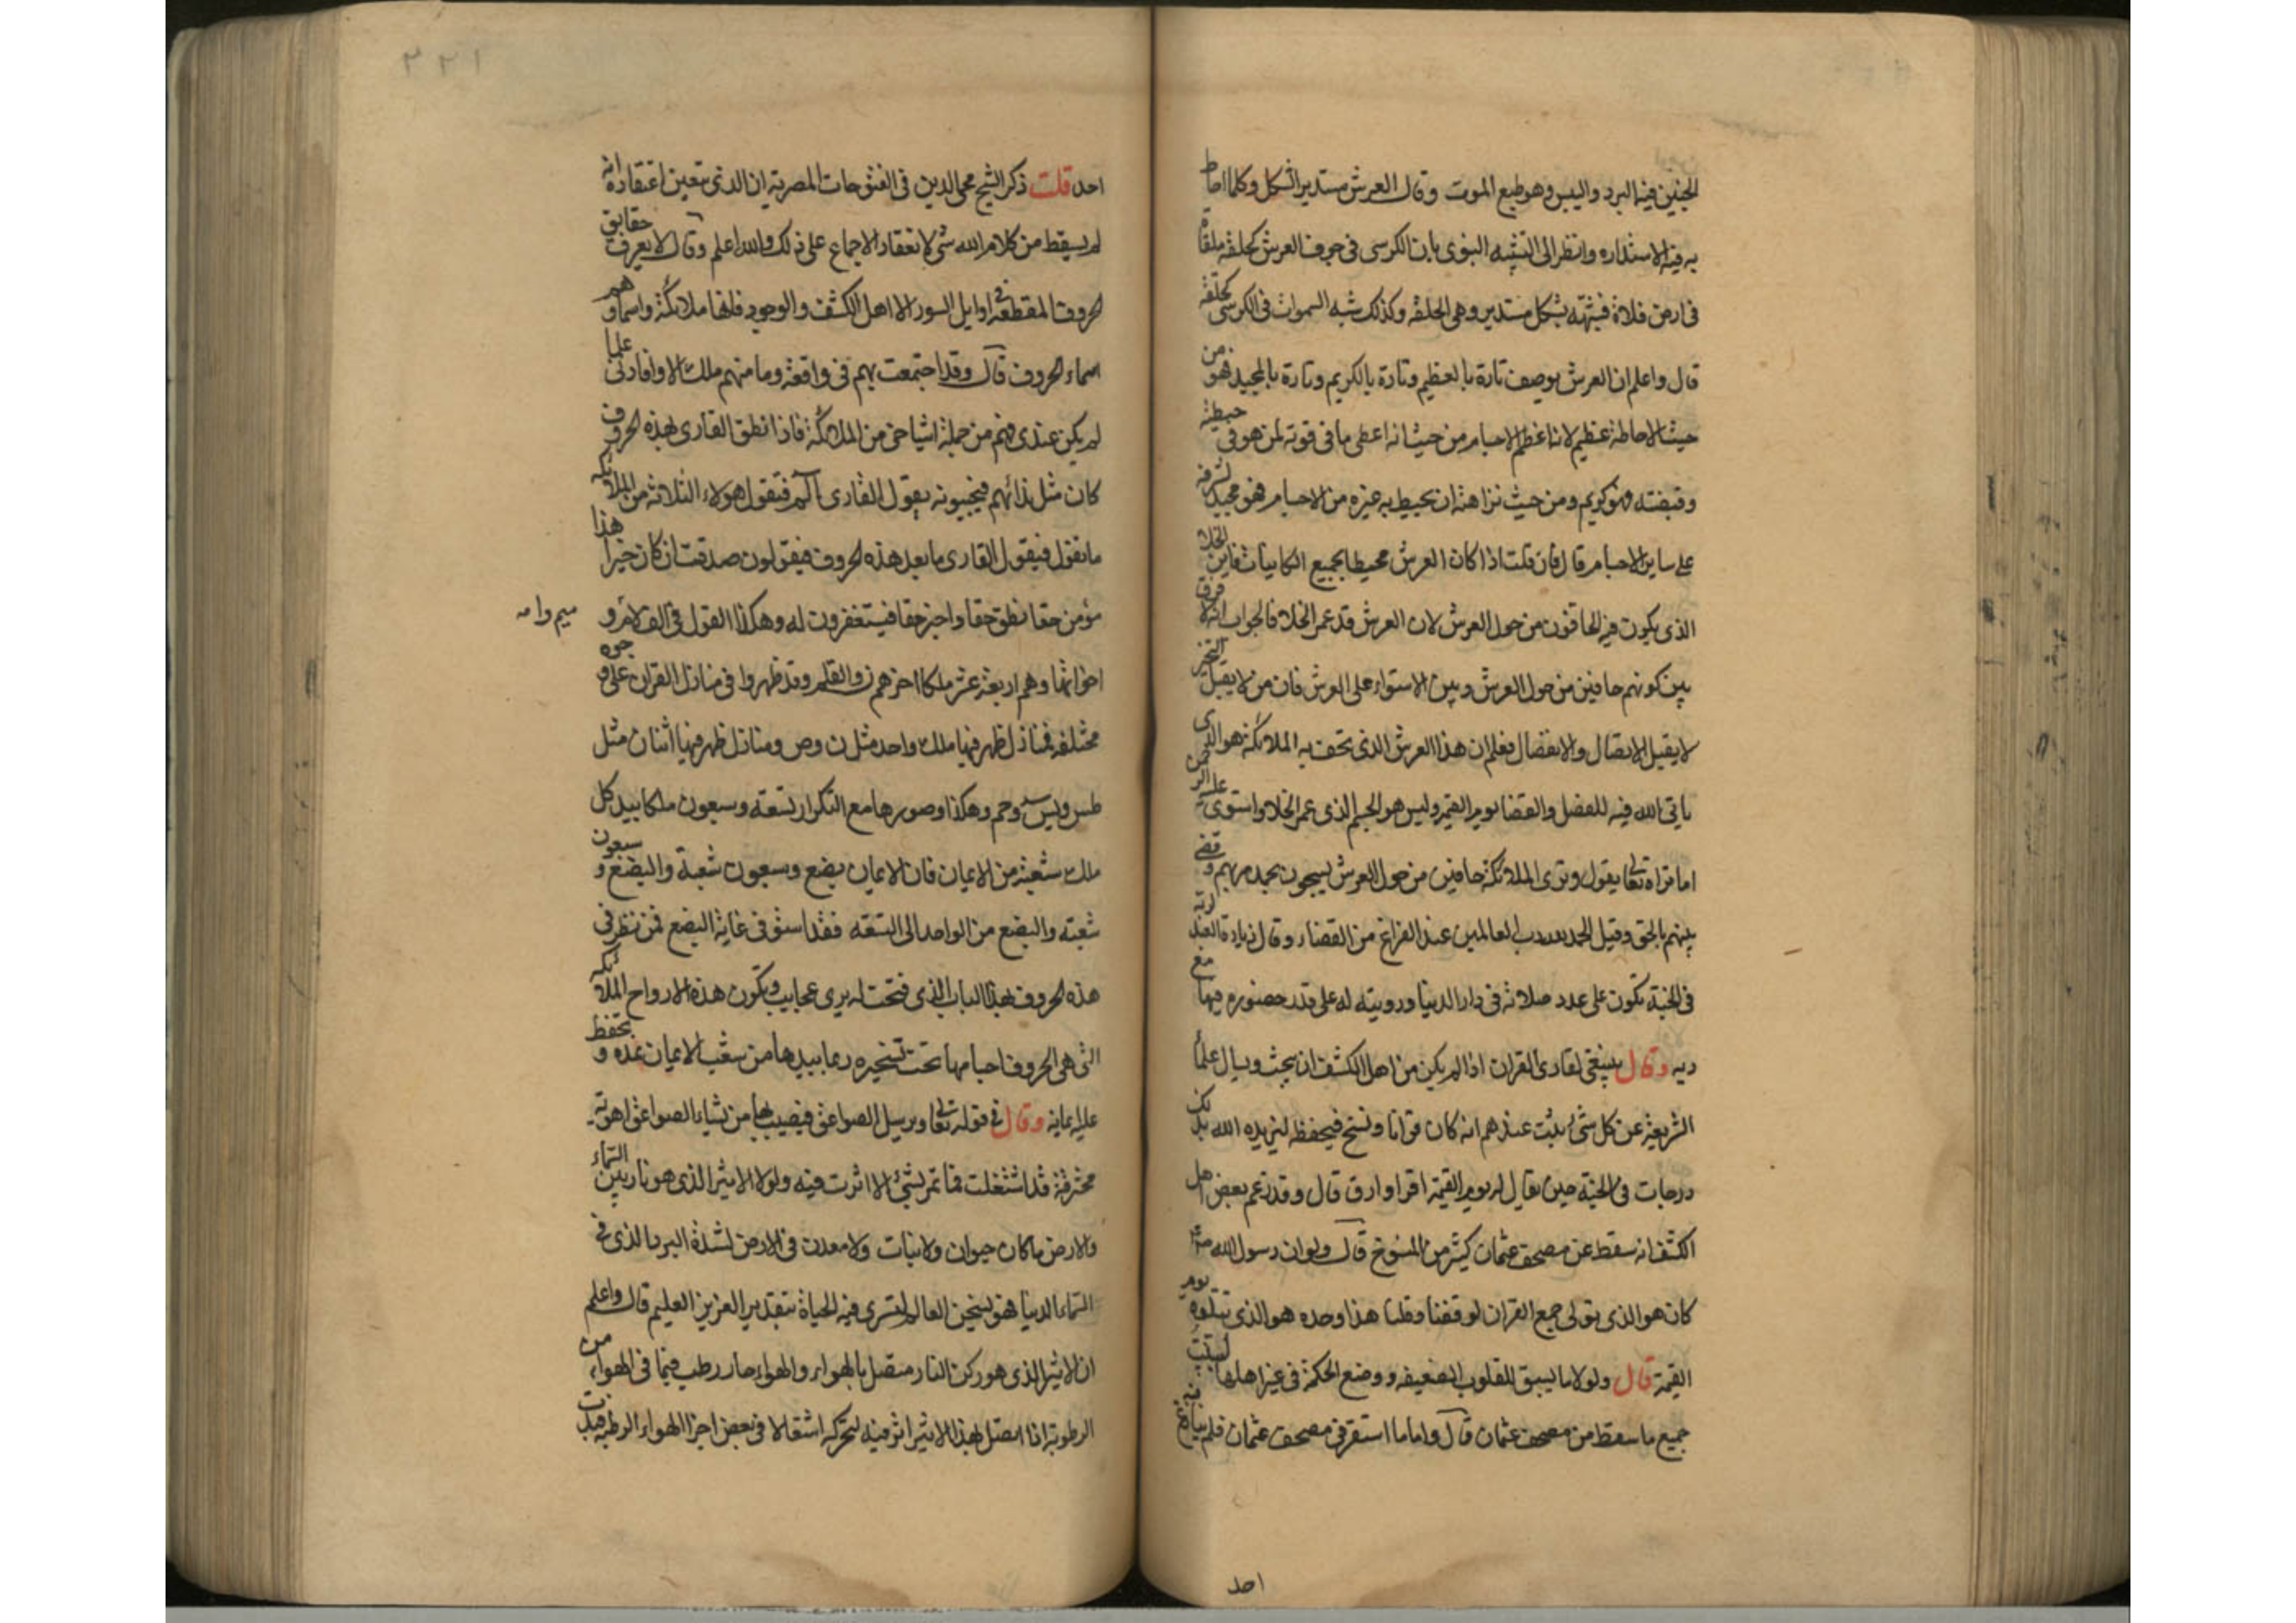 الجنين فيه البرد واليبس وهو طبع الموت وقال العرش مستدير الشكل وكلما احاط
به فيه الاستداره وانظر الى التشبيه النبوى بان الكرسى فى جوف العرش كحلقة ملقاة
فى ارض فلاة فشبهه بشكل مستدير وهى الحلقه وكذلك شبه السموات فى الكرسى كحلقة
قال واعلم ان العرش يوصف تارة بالعظيم وتارة بالكريم وتارة بالمجيد فهو من
حيث الاحاطة عظيم لانه اعظم الاجسام ومن حيث انه اعطى ما فى قوته لمن هو فى حيطته
وقبضته فهو كريم ومن حيث نزاهته ان يحيط به غيره من الاجسام فهو مجيد لشرفه
على ساير الاجسام قال فان قلت اذا كان العرش محيطا بجميع الكاينات فاين الخلا
الذى يكون فيه الحافون من حول العرش لان العرش قد عمر الخلا فالجواب انه لا فرق
بين كونهم حافين من حول العرش وبين الاستواء على العرش فان من لا يقبل التحيز
لا يقبل الاتصال والانفصال فعلم ان هذا العرش الذى تحف به الملائكة هو الذى
ياتى الله فيه للفصل والقضا يوم القيمة وليس هو الجسم الذى عمر الخلا واستوى عليه الرحمن
اما تراه تعالى يقول وترى الملائكة حافين من حول العرش يسبحون بحمد ربهم وقضى
بينهم بالحق وقيل الحمد لله رب العالمين عند الفراغ من القضاء وقال زيارة العبد لربه
فى الجنة تكون على عدد صلاته فى دار الدنيا ورويته له على قدر حضوره فيها مع
ربه وقال ينبغى لقارى القران اذا لم يكن من اهل الكشف ان يبحث ويسال علماً
الشريعة عن كل شى ثبت عندهم انه كان قرانا ونسخ فيحفظه ليزيده الله بذلك
درجات فى الجنة حين يقال له يوم القيمة اقرا وارق قال وقد زعم بعض اهل
الكشف انه سقط عن مصحف عثمان كثير من المنسوخ قال ولو ان رسول الله صلعم
كان هو الذى تولى جمع القران لوقفنا وقلنا هذا وحده هو الذى نتلوه يوم
القيمة قال ولولا ما يسبق للقلوب الضعيفه ووضع الحكمة فى غير اهلها لبينت
جميع ما سقط من مصحف عثمان قال واما ما استقر فى مصحف عثمان فلم ينازع فيه
احد
٢٢١
احد قلت ذكر الشيخ محى الدين فى الفتوحات المصرية ان الذى يتعين اعتقاده انه
لم يسقط من كلام الله شى لانعقاد الاجماع على ذلك والله اعلم وقال لا يعرف حقايق
الحروف المقطعة فى اوايل السور الا اهل الكشف والوجود فانها ملائكة واسماوهم
اسماء الحروف قال وقد اجتمعت بهم فى واقعة وما منهم ملك الا وافادنى علما
لم يكن عندى فهم من جملة اشياخى من الملائكة فاذا نطق القارى بهذه الحروف
كان مثل ندائهم فيجيبونه يقول القارى الم فتقول هولاء الثلاثه من الملائكه
ما تقول فيقول القارى ما بعد هذه الحروف فيقولون صدقت ان كان خيرا هذا
مؤمن حقا نطق حقا واخبر حقا فيستغفرون له وهكذا القول فى الف لام و
ميم وامه
اخواتها وهم اربعة عشر ملكا اخرهم ن والقلم وقد ظهروا فى منازل القران على وجوه
مختلفه فمنازل ظهر فيها ملك واحد مثل ن وص ومنازل ظهر فيها اثنان مثل
طس ويس وحم وهكذا وصورها مع التكرار تسعة وسبعون ملكا بيد كل
ملك شعبة من الايمان فان الايمان بضع وسبعون شعبة والبضع و سبعون
شعبته والبضع من الواحد الى التسعة فقد استوفى غاية البضع فمن نظر فى
هذه الحروف بهذا الباب الذى فتحت له يرى عجايب وتكون هذه الارواح الملائكه
التى هى الحروف اجسامها تحت تسخيره وبما بيدها من شعب الايمان تمده وتحفظ
عليه ايمانه وقال فى قوله تعالى ويرسل الصواعق فيصيب بها من يشاء الصواعق اهويه
محترقة قد اشتعلت فما تمر بشئ الا اثرت فيه ولولا الاثير الذى هو نار بين السماء
والارض ما كان حيوان ولا نبات ولا معدن فى الارض لشدة البرد الذى فى
السماء الدنيا فهو يسخن العالم لتسرى فيه الحياة بتقدير العزيز العليم قال واعلم
ان الاثير الذى هو ركن النار متصل بالهواء والهواء حار رطب فيما فى الهواء من
الرطوبة اذا اتصل بهذا الاثير اثر فيه لتحركه اشتعالا فى بعض اجزا الهواء الرطبة فبدت